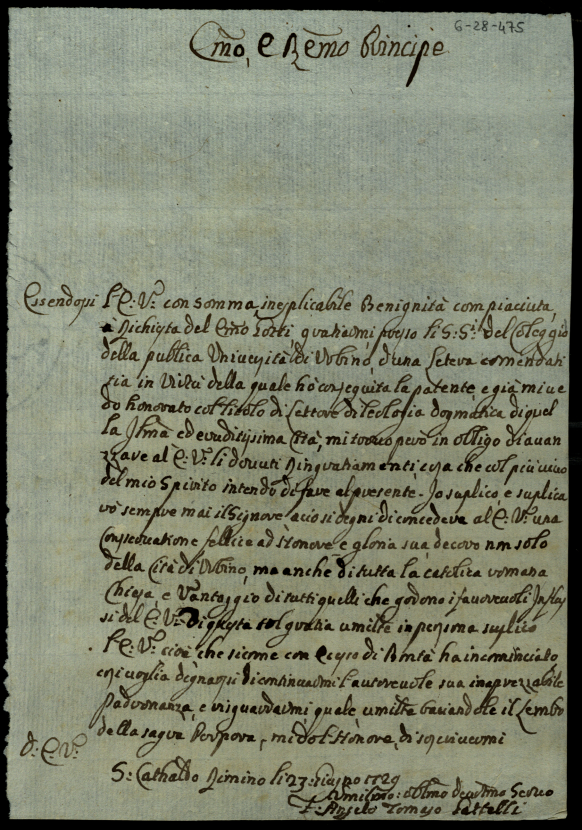 6-28-475
Emo, e Remo Principe
Essendosi l'E: V: con somma, inesplicabile Benignità compiaciuta,
à richiesta del Emo gratiarmi presso li S: S:i del Colleggio
della publica Università di Urbino, d'una Letera comendati
tia in virtù della quale hò conseguita la patente, e già mi ve
do honorato col titolo di Lettore di Teologia dogmatica di quel
la Illma ed eruditissima Città, mi trovo però in obligo di avan
zzare al E: V: li dovuti Ringratiamenti, cosa che col più vivo
del mio Spirito intendo di fare al presente. Io suplico, e suplica
rò sempre mai il Signore acio si degni di concedere al E: V: una
Conservatione fellice ad Honore, e gloria sua, decoro non solo
della Cità di Urbino, ma anche di tutta la catolica romana
Chiesa, e Vantaggio di tutti quelli che godono i favorevoli Influs
si del E: V: Di questa sol gratia umilte in persona suplico
l'E: V: cioè che sicome con ecesso di Bontà ha incominciato
così voglia degnarsi di continuarmi l'autorevole sua inaprezzabile
Padronanza, e risguardarmi quale umilte baciandole il Lembo
della sagra Porpora, mi do l'Honore, di soscrivermi
d: E: V:
S: Cathaldo Rimino li 23: giugno 1729
Umilmo: oblmo devotmo Servo
F: Angelo Tomaso